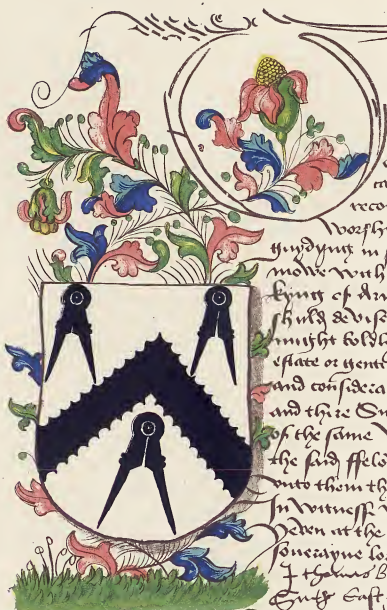 reco
Worshi
guydyng in
move with
kyng of Ar
shuld devise
might boldl
estate or gent
and considera
and there S
of the same
the said ffelo
unto them th
In Witness
Yeven at the
soverayne lo
I thomas
South East